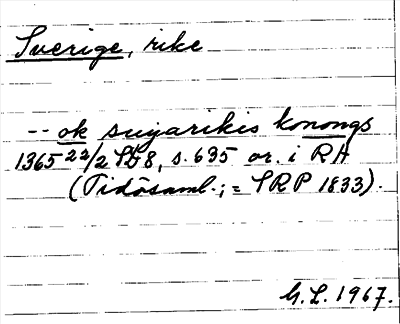 Sverige, rike
-- ok suijarikis konongs
1365 22/2 StB 8, s. 635 or. i RA
(Tidösaml.; = SRP 1833).
G.L. 1967.